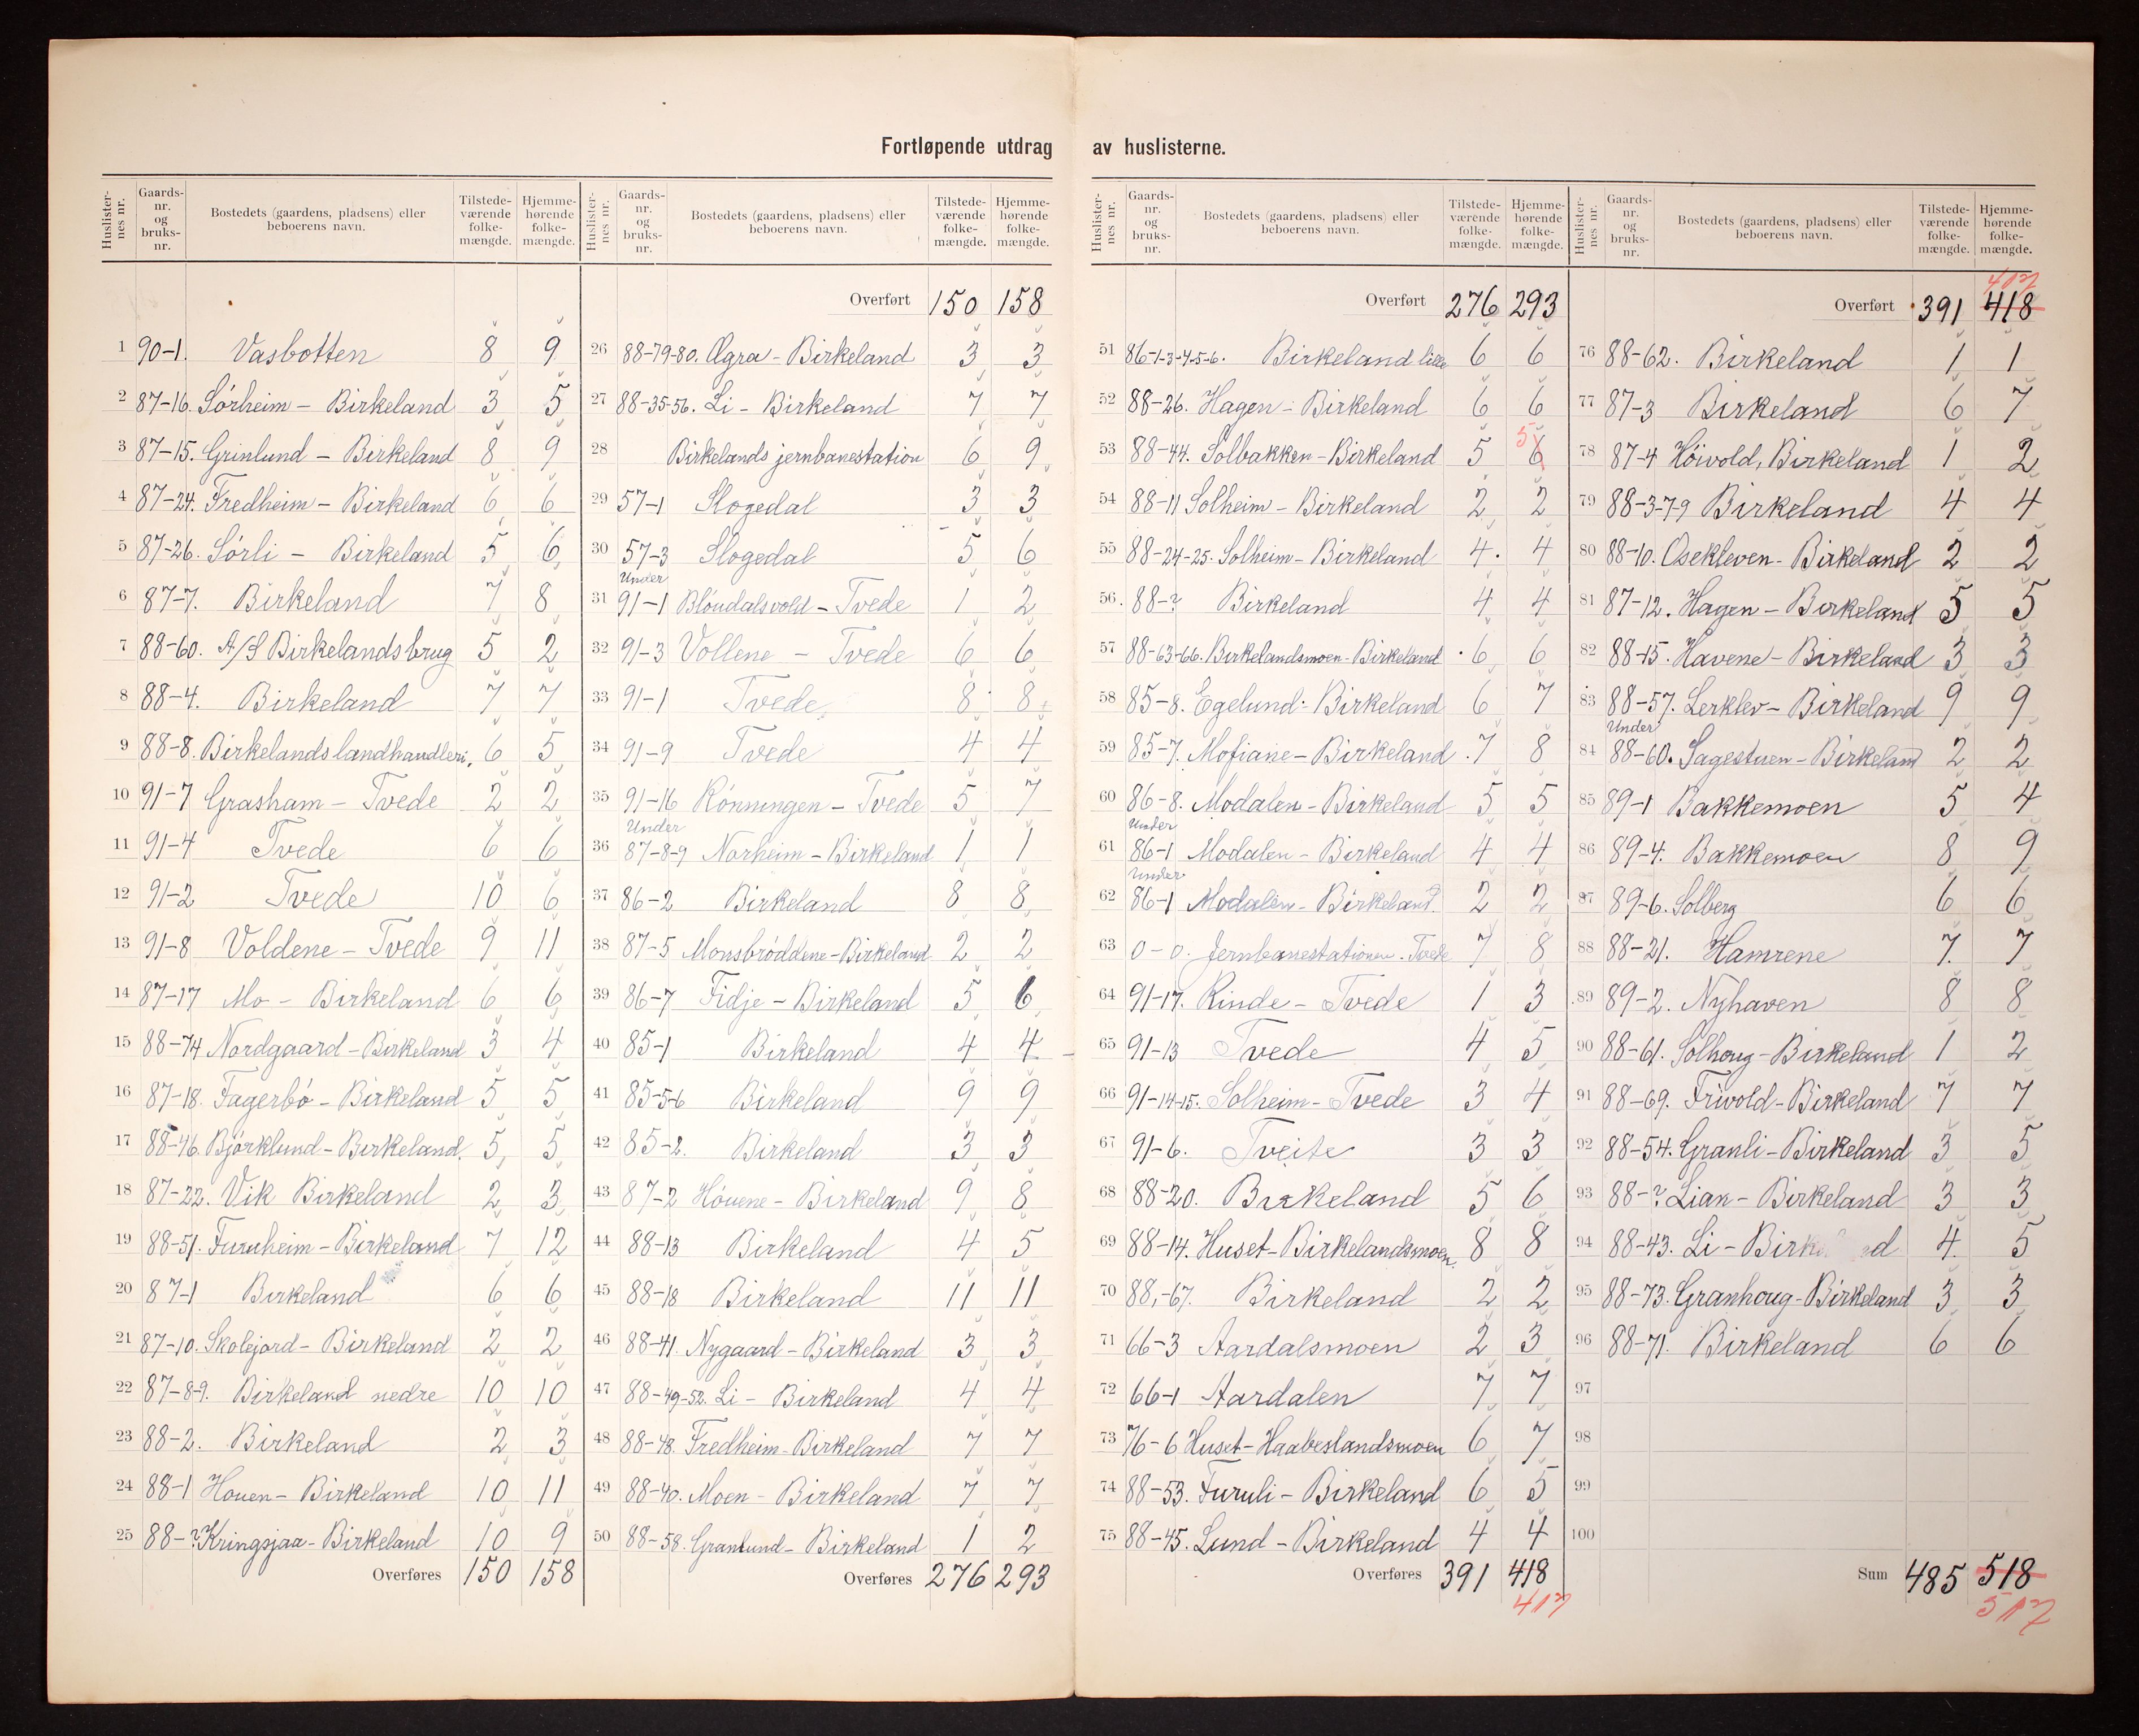 Fortløpende utdrag av huslisterne.
Huslisternes nr. Gaards-nr. og bruks-nr. Bostedets (gaardens, pladsens) eller beboerens navn. Tilstede-værende folke-mængde. Hjemme-hørende folke-mængde.
1 90-1. Vasbotten 8 9
2 87-16. Sórheim - Birkeland 3 5
3 87-15. Grinlund - Birkeland 8 9
4 87-24. Fredheim - Birkeland 6 6
5 87-26. Sórli - Birkeland 5 6
6 87-7. Birkeland 7 8
7 88-60. A/S Birkelands brug 5 2
8 88-4. Birkeland 7 7
9 88-8. Birkelands landhandleri, 6 5
10 91-7 Grasham - Tvede 2 2
11 91-4 Tvede 6 6
12 91-2 Tvede 10 6
13 91-8 Voldene - Tvede 9 11
14 87-17 Mo - Birkeland 6 6
15 88-74 Nordgaard - Birkeland 3 4
16 87-18. Fagerbó - Birkeland 5 5
17 88-46. Bjórklund - Birkeland. 5 5
18 87-22. Vik Birkeland 2 3
19 88-51. Furuheim - Birkeland 7 12
20 87-1 Birkeland 6 6
21 87-10. Skolejord - Birkeland 2 2
22 87-8-9. Birkeland nedre 10 10
23 88-2. Birkeland 2 3
24 88-1 Houen - Birkeland 10 11
25 88-? Kringsjaa - Birkeland 10 9
Overføres 150 158
Huslisternes nr. Gaards-nr. og bruks-nr. Bostedets (gaardens, pladsens) eller beboerens navn. Tilstede-værende folke-mængde. Hjemme-hørende folke-mængde.
Overført 150 158
26 88-79-80. Ogra - Birkeland 3 3
27 88-35-56. Li - Birkeland 7 7
28 Birkelands jernbanestation 6 9
29 57-1 Slogedal 3 3
30 57-3 Slogedal 5 6
Under
31 91-1 Blóndalsvold - Tvede 1 2
32 91-3 Vollene - Tvede 6 6
33 91-1 Tvede 8 8
34 91-9 Tvede 4 4
35 91-16 Rónningen - Tvede 5 7
Under
36 87-8-9 Norheim - Birkeland 1 1
37 86-2 Birkeland 8 8
38 87-5 Monsbróddene - Birkeland 2 2
39 86-7 Fidje - Birkeland 5 6
40 85-1 Birkeland 4 4
41 85-5-6 Birkeland 9 9
42 85-2. Birkeland 3 3
43 87-2 Hóuene - Birkeland 9 8
44 88-13 Birkeland 4 5
45 88-18 Birkeland 11 11
46 88-41. Nygaard - Birkeland 3 3
47 88-49-52. Li - Birkeland 4 4
48 88-48. Fredheim - Birkeland 7 7
49 88-40. Moen - Birkeland 7 7
50 88-58. Granlund - Birkeland 1 2
Overføres 276 293
Huslisternes nr. Gaards-nr. og bruks-nr. Bostedets (gaardens, pladsens) eller beboerens navn. Tilstede-værende folke-mængde. Hjemme-hørende folke-mængde.
Overført 276 293
51 86-1-3-4-5-6. Birkeland lille 6 6
52 88-26. Hagen - Birkeland 6 6
53 88-44. Solbakken - Birkeland 5 6 5
54 88-11 Solheim - Birkeland 2 2
55 88-24-25. Solheim - Birkeland 4. 4
56. 88-? Birkeland 4 4
57 88-63-66. Birkelandsmoen - Birkeland 6 6
58 85-8. Egelund - Birkeland 6 7
59 85-7. Mofiane - Birkeland 7 8
60 86-8. Modalen - Birkeland 5 5
Under
61 86-1 Modalen - Birkeland 4 4
Under
62 86-1 Modalen - Birkeland. 2 2
63 0-0. Jernbanestationen. Tvede 7 8
64 91-17. Rinde - Tvede 1 3
65 91-13 Tvede 4 5
66 91-14-15. Solheim - Tvede 3 4
67 91-6. Tveite 3 3
68 88-20. Birkeland 5 6
69 88-14. Huset - Birkelandsmoen. 8 8
70 88-67. Birkeland 2 2
71 66-3 Aardalsmoen 2 3
72 66-1 Aardalen 7 7
73 76-6 Huset - Haabeslandsmoen 6 7
74 88-53. Furuli - Birkeland 6 5
75 88-45. Lund - Birkeland 4 4
Overføres 391 418
417
Huslisternes nr. Gaards-nr. og bruks-nr. Bostedets (gaardens, pladsens) eller beboerens navn. Tilstede-værende folke-mængde. Hjemme-hørende folke-mængde.
417
Overført 391 418
76 88-62. Birkeland 1 1
77 87-3 Birkeland 6 7
78 87-4 Hóivold, Birkeland 1 2
79 88-3-7-9 Birkeland 4 4
80 88-10. Osekleven - Birkeland 2 2
81 87-12. Hagen - Birkeland 5 5
82 88-15. Havene - Birkeland 3 3
83 88-57. Lerklev - Birkeland 9 9
Under
84 88-60. Sagestuen - Birkeland 2 2
85 89-1 Bakkemoen 5 4
86 89-4. Bakkemoen 8 9
87 89-6. Solberg 6 6
88 88-21. Hamrene 7. 7
89 89-2. Nyhaven 8 8
90 88-61. Solhoug - Birkeland 1 2
91 88-69. Frivold - Birkeland 7 7
92 88-54. Granli - Birkeland 3 5
93 88-? Lian - Birkeland 3 3
94 88-43. Li - Birkeland 4. 5
95 88-73. Granhoug - Birkeland 3 3
96 88-71. Birkeland 6 6
97
98
99
100
Sum 485 518
517